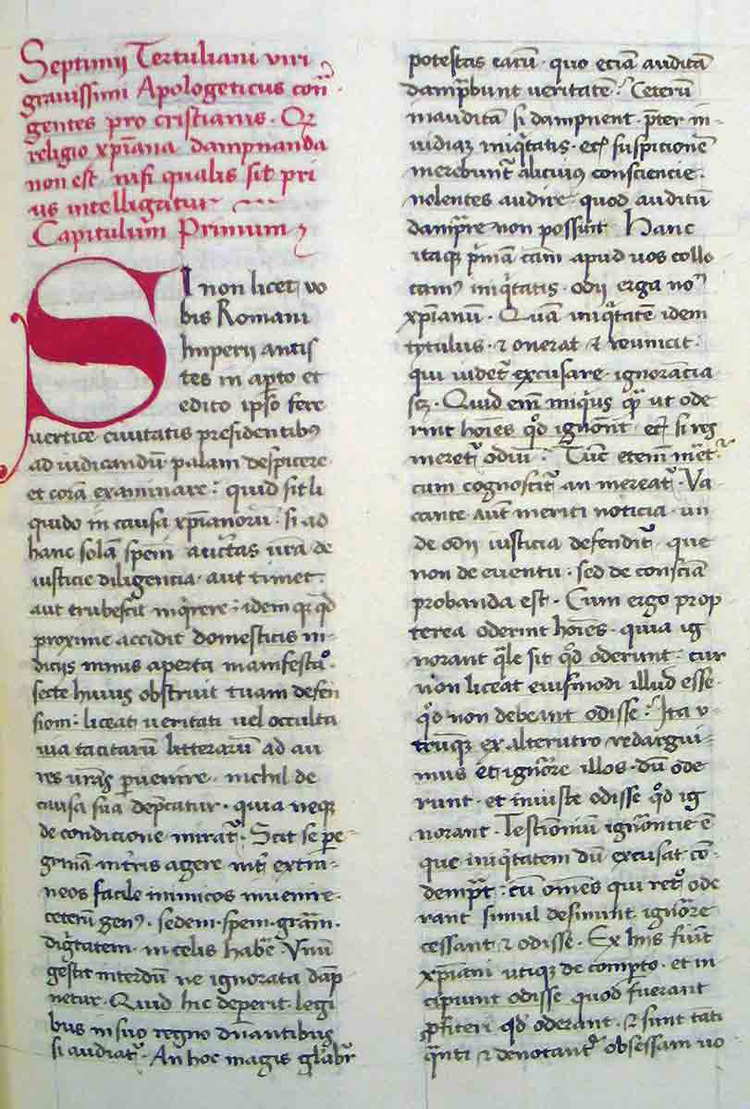 Septimij Tertuliani viri
grauissimi Apologeticus con̄
gentes pro cristianis. Qz
religio xp̄iana dampnanda
non est nisi qualis sit pri
us intelligatur
Capitulum Primum
SI non licet vo
bis Romani
Imperij antis
tes in ap̄to et
edito ipso fere
vertice ciuitatis presidentibꝰ
ad iudicandū palam despicere
et corā examinare: quid sit li
quido in causa xp̄ianorū. si ad
hanc solā spem auctāts vr̄a de
iusticie diligencia. aut timet.
aut erubescit inq̄rere: idem qz qd̄
proxime accidit domesticis in-
dicijs nimis aperta manifestaꝰ.
secte huius obstruit tuam defen
siom: liceat veritati vel occulta
via tacitarū litterarū ad au
res vr̄as ꝑuenire. nichil de
causa sua dep̄catur. quia neqz
de condicione mirat᷑. Scit se pe-
grinā in tr̄ris agere int᷑ extra-
neos facile inimicos inuenire.
ceterū genꝰ. sedem. spem. grām.
diḡtatem. in celis hab̄e Vnū
gestit interdū ne ignorata dāp
netur. Quid hic deperit legi
bus in suo regno dn̄antibus
si audiat᷑. An hoc magis gl̄abr̄
potestas earū. quo eciā auditā
dampn̄bunt veritatē: Ceterū
inauditā si dampnent. p̄ter in-
uidiaz iniq̄tatis. et᷑ suspicionē
merebunt᷑ alicuius consciencie.
nolentes audire. quod auditū
damp̄re non possint Hanc
itaqz p̄mā cām apud vos collo
camꝰ iniq̄tatis. odij erga noē
xp̄ianū. Quā iniq̄tatē idem
tytulus. ⁊ onerat ⁊ reuincit.
qui videt᷑ excusare. ignorācia
scꝫ. Quid em̄ iniqiꝰ q̄ꝫ ut ode
rint hoīes qd̄ ignōnt. et᷑ si res
meret᷑ odiū: Tūc etem̄ m̄et᷑
cum cognoscit᷑ an mereat᷑. Va
cante aūt meriti noticia. un
de odij iusticia defendit᷑. que
non de euentu. sed de consciā
probanda est. Cum ergo prop
terea oderint hoīes. quia ig
norant q̄le sit qd̄ oderunt. cur
non liceat eiusmodi illud esse.
qd̄ non debeant odisse: Ita v
trūqz ex alterutro redargui-
mus et ignōre illos. dū ode
runt. et iniuste odisse qd̄ ig
norant. Testioniū ignōntie ē
que iniq̄tatem dū excusat cō-
dempn̄t. cū omēs qui ret᷑o ode
rant simul desinunt ignōre
cessant ⁊ odisse. Ex hijs fiūt
xp̄iani vtiqz de comp̄to. et in
cipiunt odisse quod fuerant
ꝓfiteri qd̄ oderant. ⁊ sunt tāti
q̄nti ⁊ denotant᷑ obsessam vo